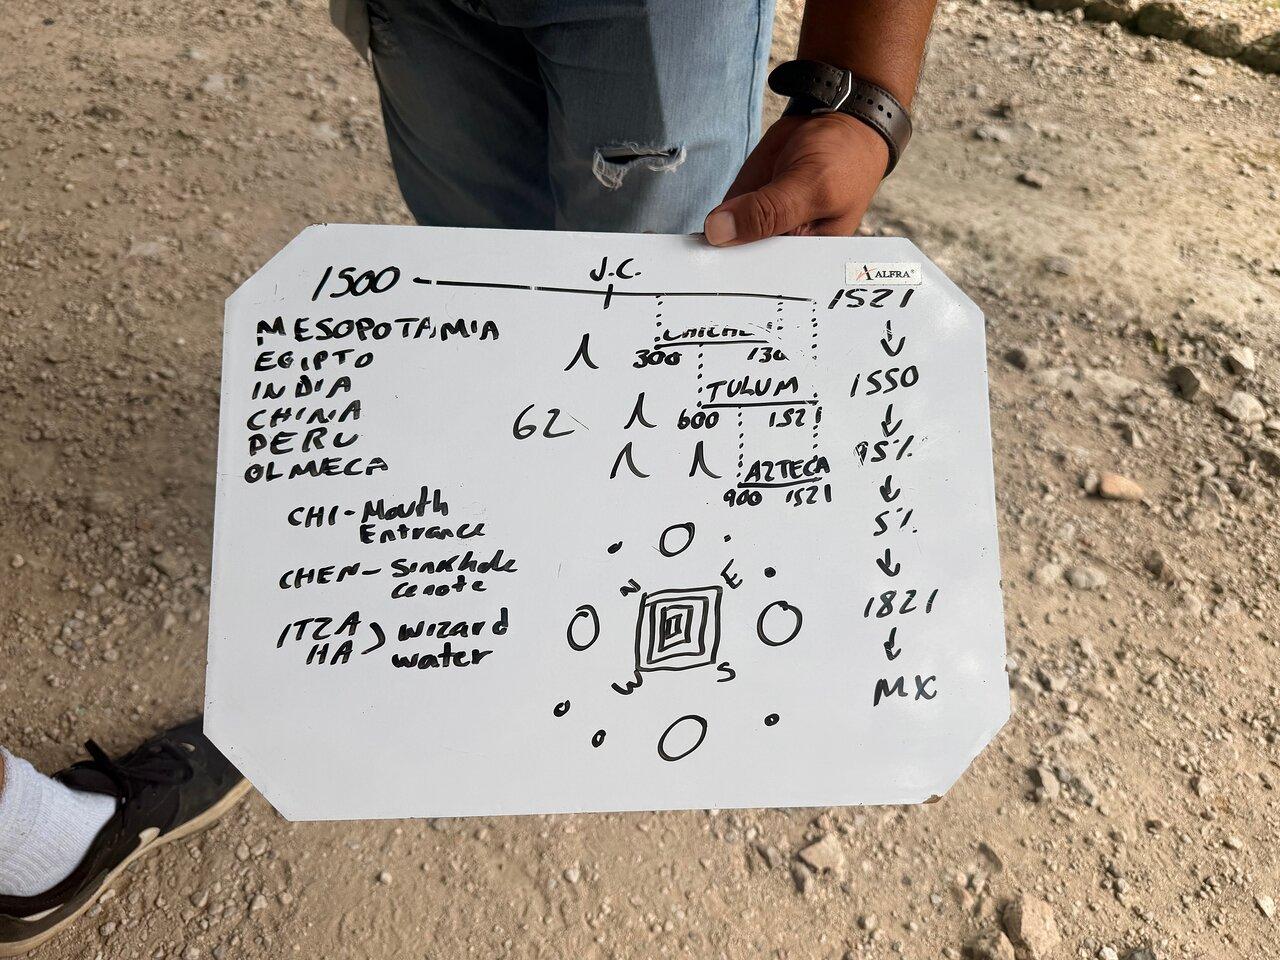 J.C.
1500
1521
ALFRA
MESOPOTAMIA
EGIPTO
INDIA
CHINA
PERU
OLMECA
300
TULUM
600 1521
62
AZTECA
900 1521
1550
5%
1821
MX
CHI - Mouth
Entrance
CHEN - Sinkhole
Cenote
ITZA
HA
wizard
water
N
E
W
S